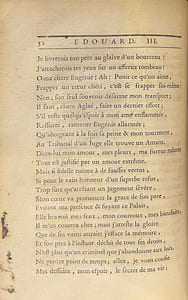 52 EDOUARD III.
Je livrerois ton pere au glaive d'un bourreau !
J'attacherois tes yeux sur un affreux tombeau !
O ma chere Eugénie ! Ah ! Punir ce qu'on aime,
Frapper un cœur chéri, c'est se frapper soi-même ;
Non ; son seul souvenir désarme mon transport ;
Il faut, chere Aglaé, faire un dernier effort ;
S'il reste quelqu'espoir à mon ame enflammée,
Rassurer, ramener Eugénie allarmée ;
Qu'abrégeant à la fois sa peine & mon tourment,
Au Tribunal d'un Juge elle trouve un Amant.
Dites-lui mon amour, mes pleurs, ma foiblesse
Tout est justifié par un amour extrême.
Mais si fidelle encore à de fausses vertus ;
Si pour le vain honneur d'un superbe refus,
Trop sûre qu'arrêtant un jugement sévère,
Mon cœur va prononcer la grace de son pere,
Evitant ma présence & fuyant ce Palais,
Elle bravoit mes feux, mon courroux, mes bienfaits,
Il m'en coutera cher ; mais j'atteste la gloire
Que de ses vains attraits j'efface la mémoire ;
Et son pere à l'instant déchu de tous ses droits,
N'est plus qu'un criminel que j'abandonne aux loix.
Ne perdez point de temps ; allez, je vous confie
Mes desseins, mon espoir, le secret de ma vie ;